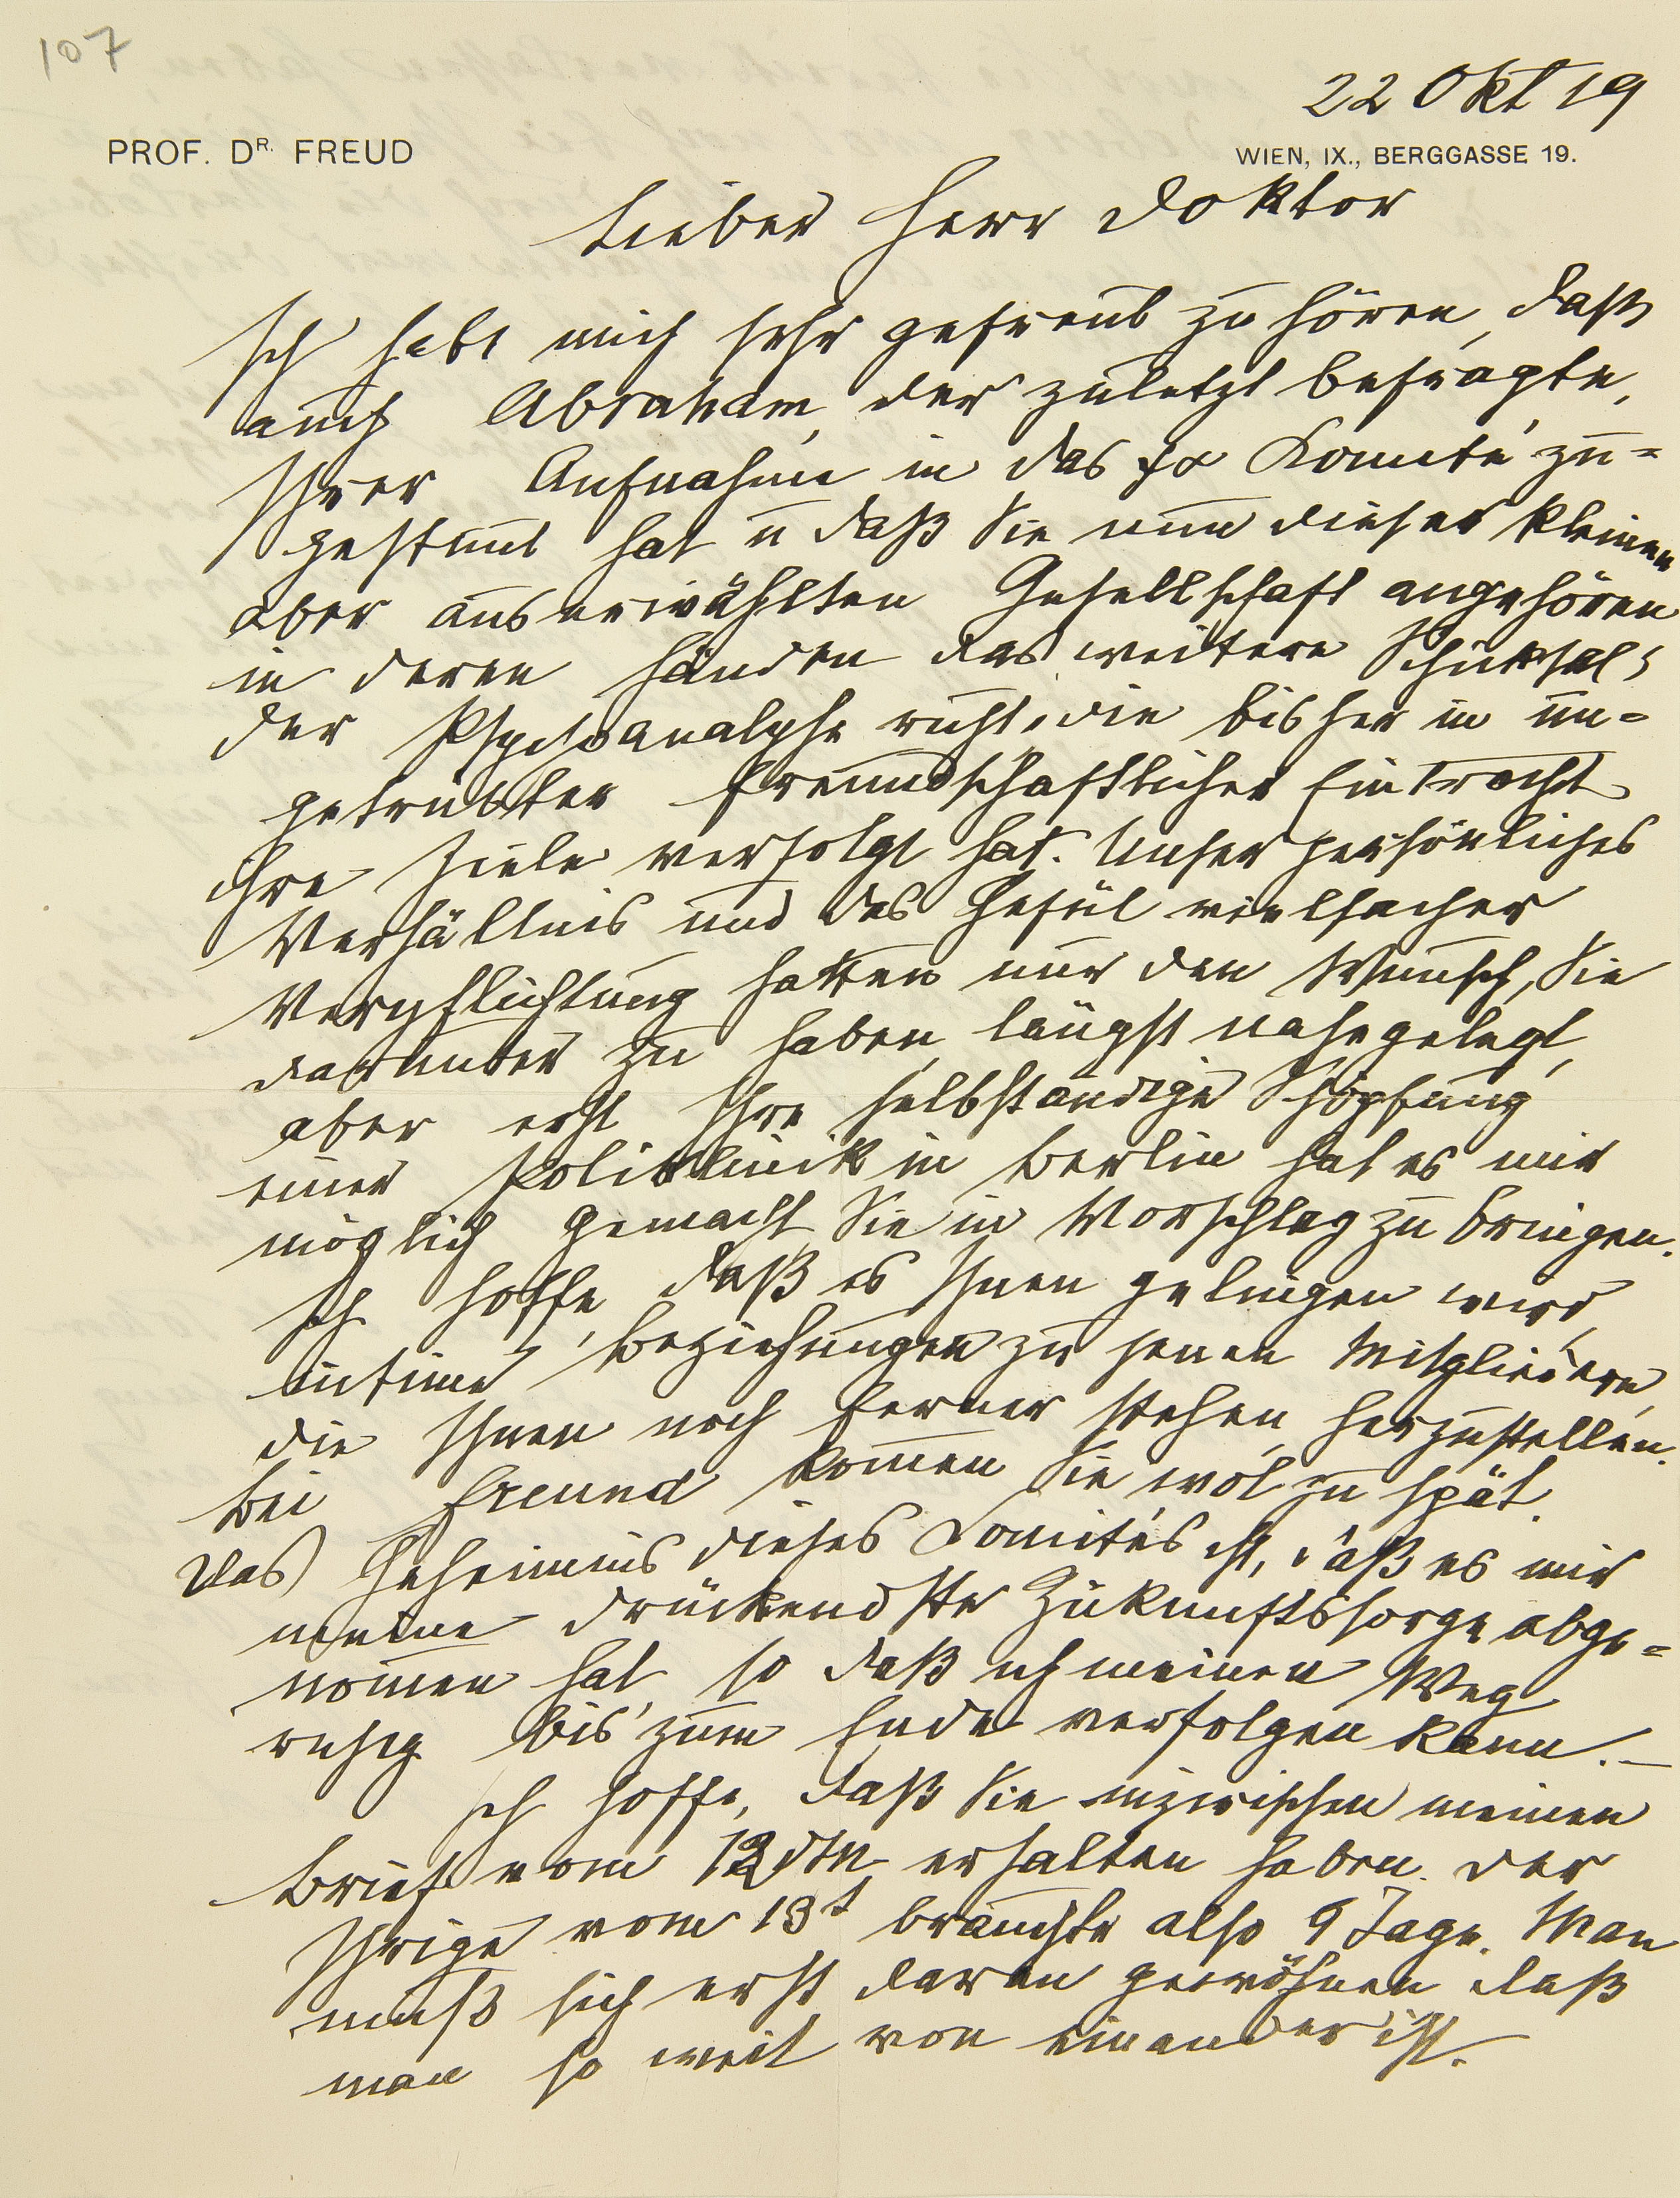 107
22 Okt 19
PROF. DR. FREUD
WIEN, IX., BERGGASSE 19.
Lieber Herr Doktor
Ich habe mich sehr gefreut zu hören, daß
auch Abraham, der zuletzt befragte,
Ihrer Aufnahme in das ψα Komité zu=
gestimmt hat u daß Sie nun dieser kleinen
aber auserwählten Gesellschaft angehören
in deren Händen das weitere Schicksal
der Psychoanalyse ruht, die bisher in un=
getrübter freundschaftlicher Eintracht
ihre Ziele verfolgt hat. Unser persönliches
Verhältnis und das Gefül vielfacher
Verpflichtung hatten mir den Wunsch, Sie
darunter zu haben, längst nahe gelegt,
aber erst Ihre selbständige Schöpfung
einer Poliklinik in Berlin hat es mir
möglich gemacht, Sie in Vorschlag zu bringen.
Ich hoffe, daß es Ihnen gelingen wird,
intime Beziehungen zu jenen Mitgliedern,
die Ihnen noch ferner stehen, herzustellen.
Bei Freund kommen Sie wol zu spät.
Das Geheimnis dieses Comités ist, daß es mir
meine drückendste Zukunftssorge abge=
nommen hat, so daß ich meinen Weg
ruhig bis zum Ende verfolgen kann. –
Ich hoffe, daß Sie inzwischen meinen
Brief vom 12 dM erhalten haben. Der
Ihrige vom 13t brauchte also 9 Tage. Man
muß sich erst daran gewöhnen daß
man so weit von einander ist.